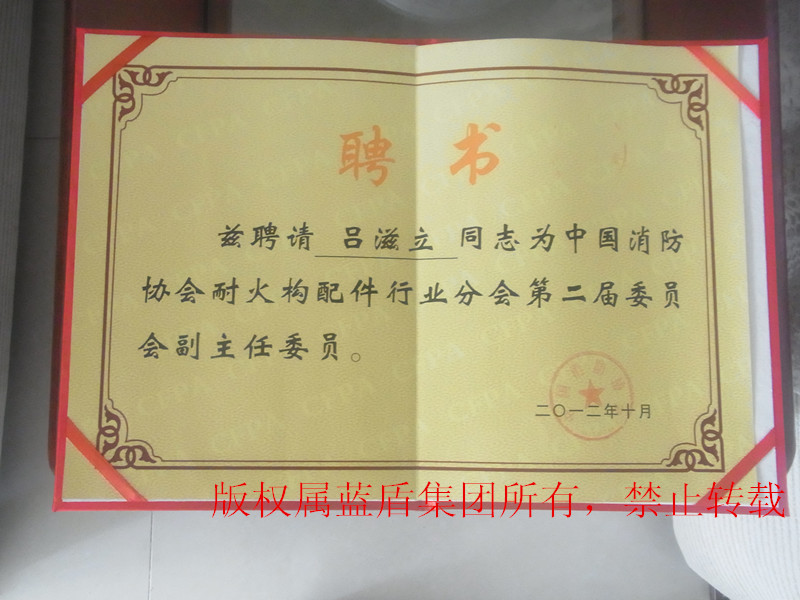 聘书
兹聘请 吕滋立 同志为中国消防
协会耐火构配件行业分会第二届委员
会副主任委员。
二〇一二年十月
版权属蓝盾集团所有，禁止转载